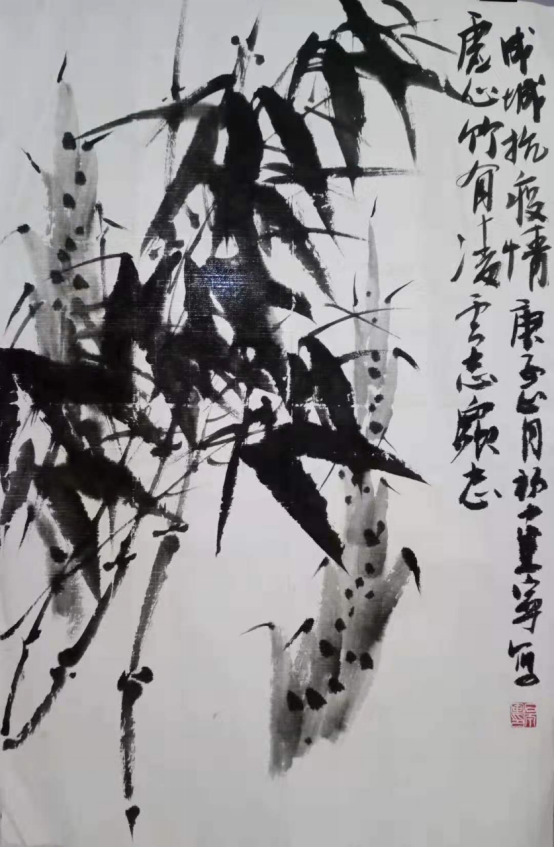 虚心竹有凌云志眾志
成城抗疫情 庚子正月初十 写